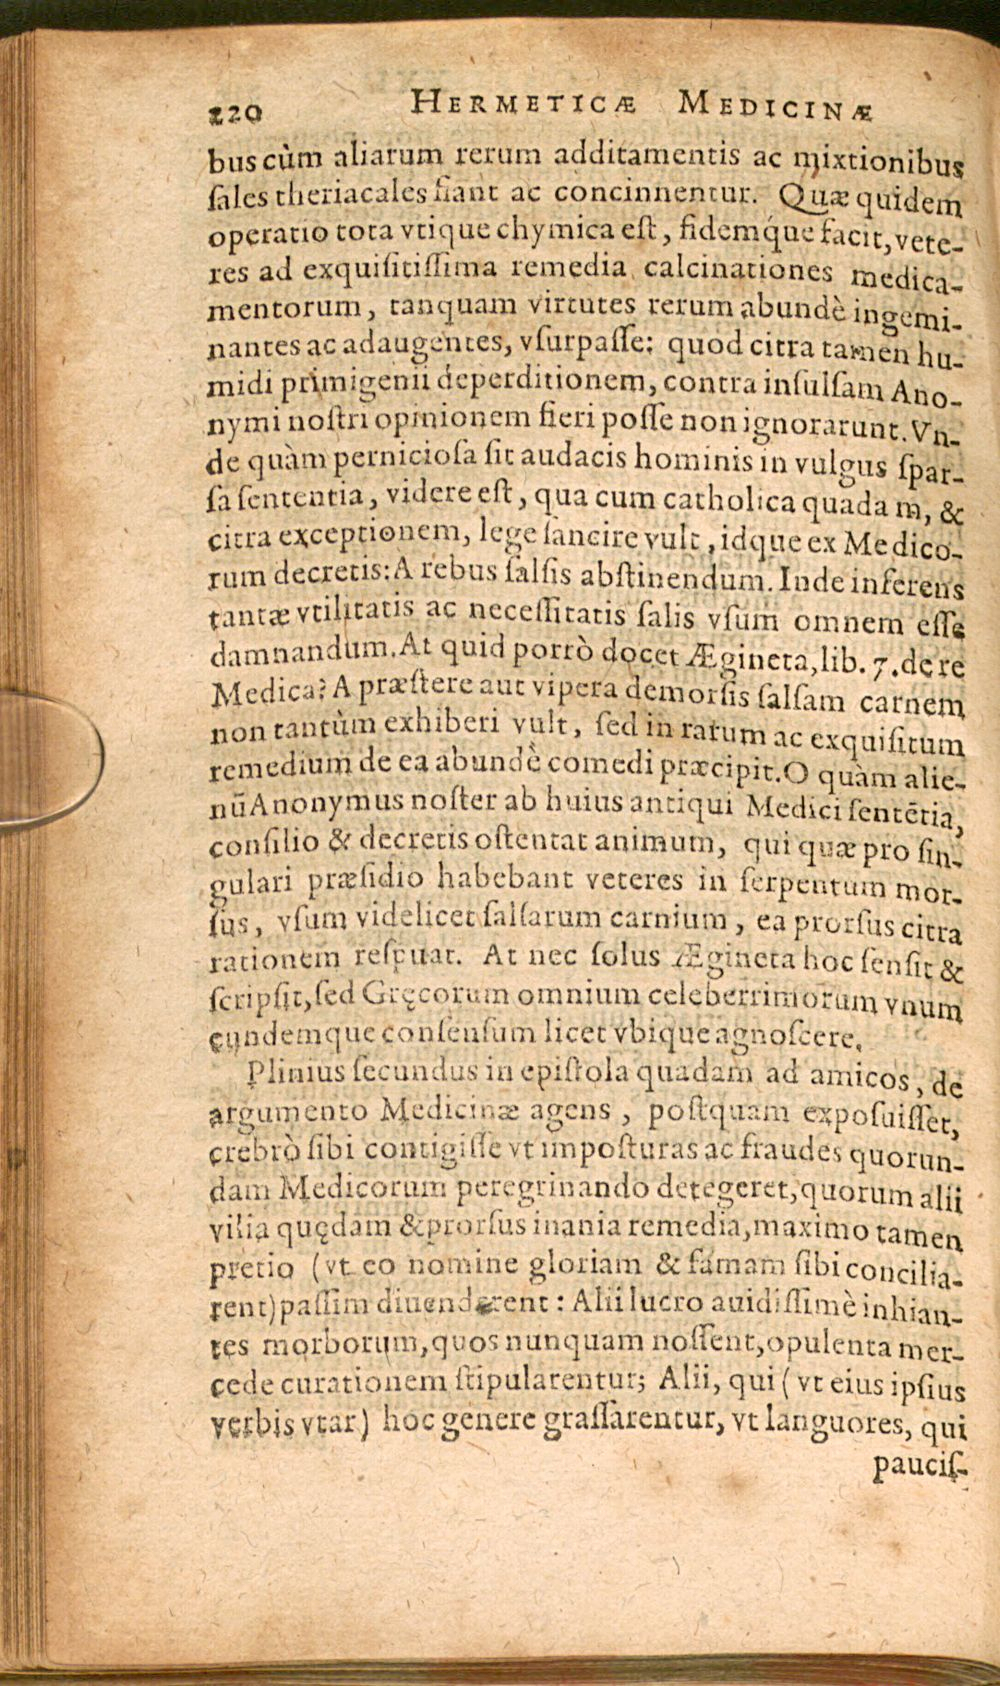 220 HERMETICÆ MEDICINÆ
bus cùm aliarum rerum additamentis ac mixtionibus
ſales theriacales fiant ac concinnentur. Quæ quidem
operatio tota vtique chymica eſt, fidemq́ue facit, vete-
res ad exquiſitiſſima remedia calcinationes medica-
mentorum, tanquam virtutes rerum abundè ingemi-
nantes ac adaugentes, vſurpaſſe: quod citra tamen hu-
midi primigenii deperditionem, contra inſulſam Ano-
nymi noſtri opinionem fieri poſſe non ignorarunt. Vn-
de quàm pernicioſa ſit audacis hominis in vulgus ſpar-
ſa ſententia, videre eſt, qua cum catholica quadam, &
citra exceptionem, lege ſancire vult, idque ex Medico-
rum decretis: A rebus ſalſis abſtinendum. Inde inferens
tantæ vtilitatis ac neceſſitatis ſalis vſum omnem eſſe
damnandum. At quid porrò docet Ægineta, lib. 7. de re
Medica? A præſtere aut vipera demorſis ſalſam carnem
non tantùm exhiberi vult, ſed in ratum ac exquiſitum
remedium de ea abundè comedi præcipit. O quàm alie-
nũ Anonymus noſter ab huius antiqui Medici ſentẽtia,
conſilio & decretis oſtentat animum, qui quæ pro ſin-
gulari præſidio habebant veteres in ſerpentum mor-
ſus, vſum videlicet ſalſarum carnium, ea prorſus citra
rationem reſpuat. At nec ſolus Ægineta hoc ſenſit &
ſcripſit, ſed Gręcorum omnium celeberrimorum vnum
eundemque conſenſum licet vbique agnoſcere.
Plinius ſecundus in epiſtola quadam ad amicos, de
argumento Medicinæ agens, poſtquam expoſuiſſet,
crebrò ſibi contigiſſe vt impoſturas ac fraudes quorun-
dam Medicorum peregrinando detegeret, quorum alii
vilia quędam & prorſus inania remedia, maximo tamen
pretio (vt eo nomine gloriam & famam ſibi concilia-
rent) paſſim diuenderent: Alii lucro auidiſſimè inhian-
tes morborum, quos nunquam noſſent, opulenta mer-
cede curationem ſtipularentur; Alii, qui (vt eius ipſius
verbis vtar) hoc genere graſſarentur, vt languores, qui
pauciſ-